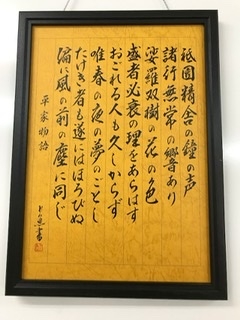 祇園精舎の鐘の声
諸行無常の響あり
娑羅双樹の花の色
盛者必衰の理をあらはす
おごれる人も久しからず
唯春の夜の夢のごとし
たけき者も遂にはほろびぬ
偏に風の前の塵に同じ
平家物語